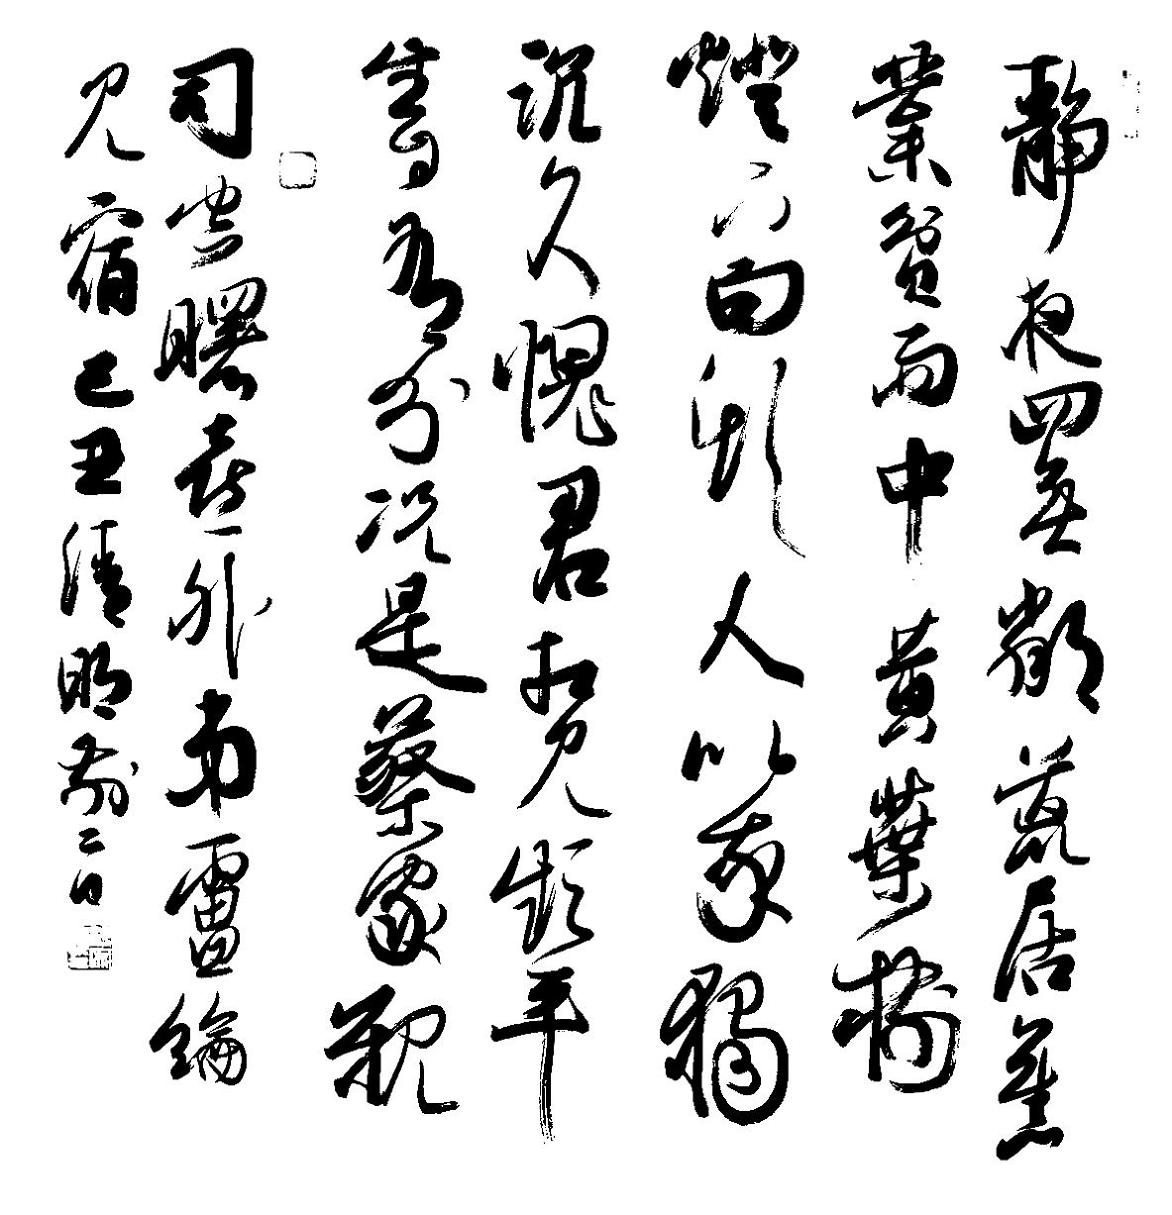 靜夜四無鄰荒居舊
業貧雨中黃葉樹
燈下白頭人以我獨
沉久愧君相見頻平
生自有分况是蔡家親
司空曙喜外弟盧綸
見宿己丑清明前二日